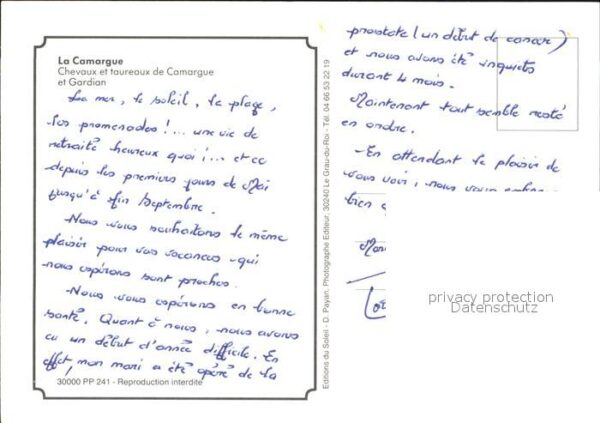 La Camargue
Chevaux et taureaux de Camargue
et Gardian
La mer, le soleil, la plage,
les promenades !... une vie de
retraité heureux quoi !... et ce
depuis les premiers jours de Mai
jusqu'à fin Septembre.
- Nous vous souhaitons le même
plaisir pour vos vacances qui
nous espérons sont proches.
- Nous vous espérons en bonne
santé. Quant à nous, nous avons
eu un début d'année difficile. En
effet, mon mari a été opéré de la
30000 PP 241 - Reproduction interdite
Editions du Soleil - D. Payan, Photographe Editeur, 30240 Le Grau-du-Roi - Tél. 04 66 53 22 19
prostate (un début de cancer)
et nous avons été inquiets
durant 4 mois.
Maintenant tout semble resté
en ordre.
- En attendant le plaisir de
vous voir, nous vous
bien
privacy protection
Datenschutz